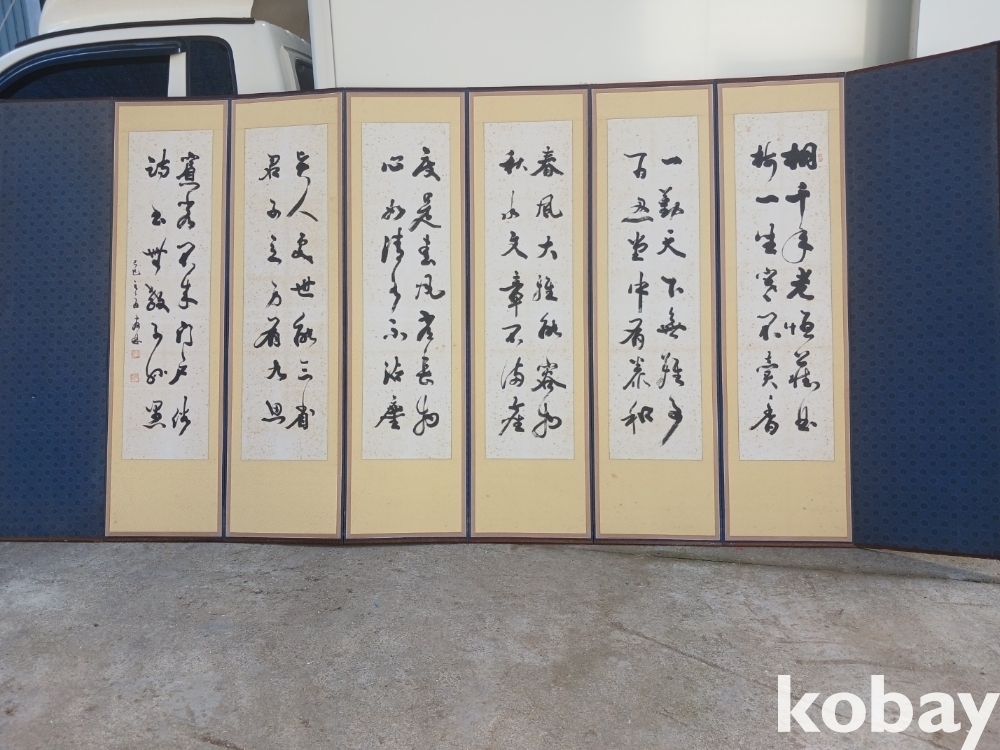 桐千年老恒藏曲
梅一生寒不賣香
一勤天下無難事
百忍堂中有泰和
春風大雅能容物
秋水文章不染塵
度是春風常長物
心如清水不沾塵
吾人處世能三省
君子立身有九思
賓客不來門戶俗
詩書無教子孫愚
kobay